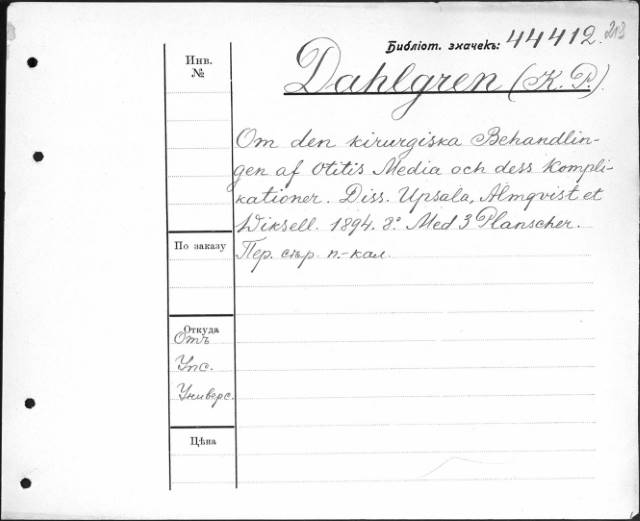 Библіот. значекъ: 44412. 213
Инв.
№
Dahlgren (K. P.).
Om den kirurgiska Behandlin-
gen af Otitis Media och dess Kompli-
kationer. Diss. Upsala, Almqvist et
Wiksell. 1894. 8° Med 3 Planscher.
По заказу
Пер. стр. п.-кал.
Откуда
Отъ
Упс.
Универс.
Цѣна